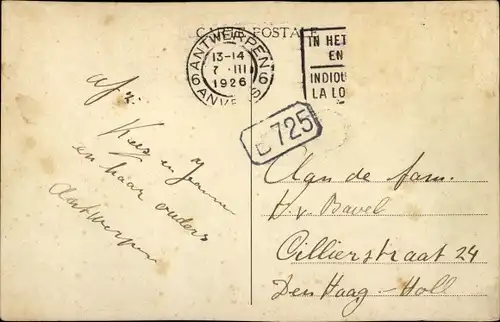 CARTE POSTALE
ANTWERPEN
13-14
7 III
1926
6 ANVERS 6
IN HET
EN
INDIQU
LA LO
725
afz.
Kees en
en haar ouders
Antwerpen
Aan de fam.
H. v. Bavel
Cillierstraat 24
Den Haag - Holl